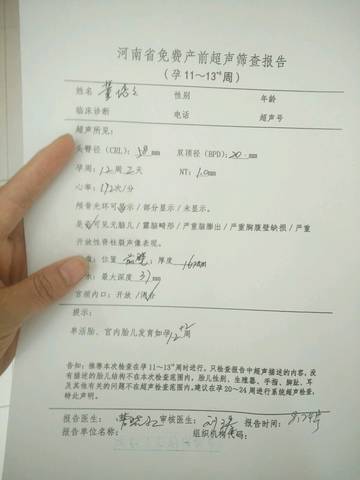 河南省免费产前超声筛查报告
（孕11～13⁺⁶周）
姓名 性别 年龄
临床诊断 电话 超声号
超声所见：
头臀径（CRL）：58mm 双顶径（BPD）：20mm
孕周：12周 天 NT：1.0mm
心率：172次/分
颅骨光环可显示/部分显示/未显示。
是否可见无脑儿/露脑畸形/严重脑膨出/严重胸腹壁缺损/严重
开放性脊柱裂声像表现。
盘：位置 厚度 16mm
水：最大深度 37mm
宫颈内口：开放/闭合
提示：
单活胎、宫内胎儿发育如孕12⁺²周
告知：推荐本次检查在孕11～13⁺⁶周时进行。只检查报告中超声描述的内容，没
有描述的胎儿结构不在本次检查范围内，胎儿性别、生殖器、手指、脚趾、耳
及其他有关的问题不在超声检查范围。建议在孕20～24周进行系统超声检查，
特此声明。
报告医生： 审核医生： 报告时间：
报告单位名称： 组织机构代码：